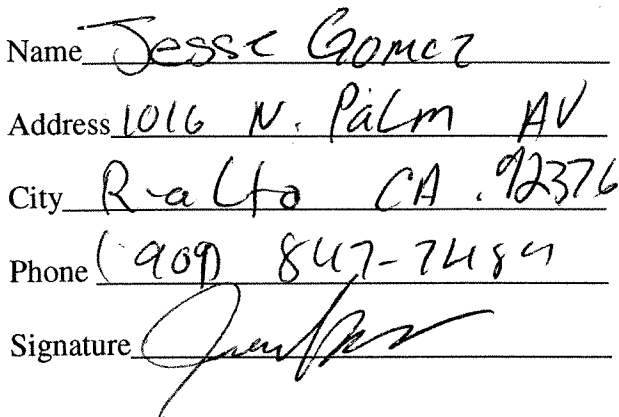 Name Jesse Gomez
Address 1016 N. Palm AV
City Rialto CA. 92376
Phone (909) 847-7484
Signature